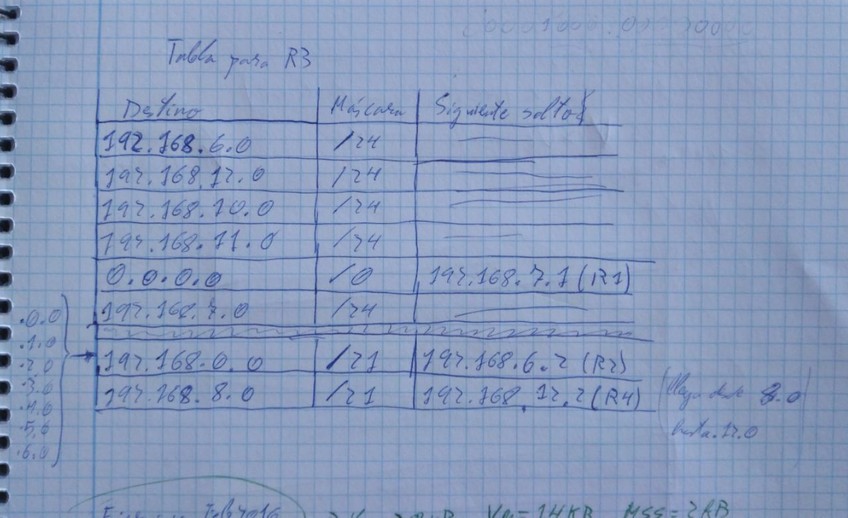 Tabla para R3
Destino Máscara Siguiente salto
192.168.6.0 /24
192.168.12.0 /24
192.168.10.0 /24
192.168.11.0 /24
0.0.0.0 /0 192.168.7.1 (R1)
192.168.7.0 /24
192.168.0.0 /21 192.168.6.2 (R2)
192.168.8.0 /21 192.168.12.2 (R4)
.0.0
.1.0
.2.0
.3.0
.4.0
.5.0
.6.0
(llega desde 8.0
hasta .12.0
MSS = 2KB